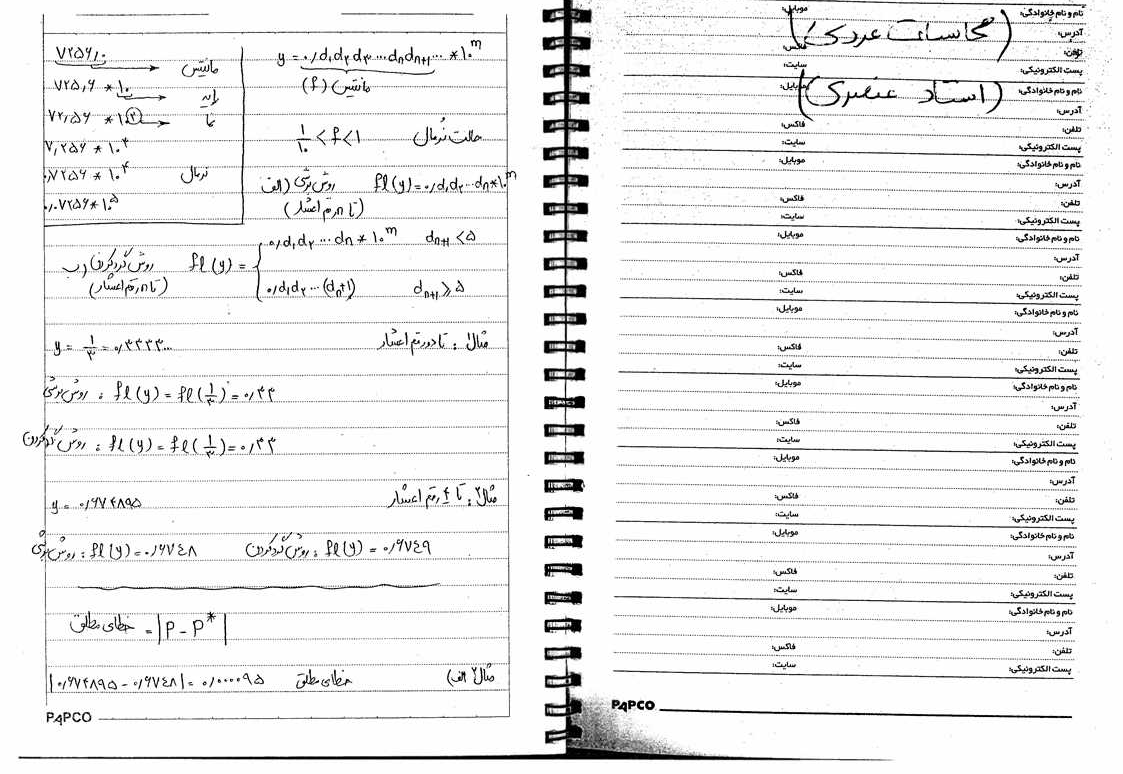 (محاسبات عددی)
(استاد عنصری)
نام و نام خانوادگی: موبایل:
آدرس:
تلفن: فاکس:
پست الکترونیکی: سایت:
نام و نام خانوادگی: موبایل:
آدرس:
تلفن: فاکس:
پست الکترونیکی: سایت:
نام و نام خانوادگی: موبایل:
آدرس:
تلفن: فاکس:
پست الکترونیکی: سایت:
نام و نام خانوادگی: موبایل:
آدرس:
تلفن: فاکس:
پست الکترونیکی: سایت:
نام و نام خانوادگی: موبایل:
آدرس:
تلفن: فاکس:
پست الکترونیکی: سایت:
نام و نام خانوادگی: موبایل:
آدرس:
تلفن: فاکس:
پست الکترونیکی: سایت:
نام و نام خانوادگی: موبایل:
آدرس:
تلفن: فاکس:
پست الکترونیکی: سایت:
نام و نام خانوادگی: موبایل:
آدرس:
تلفن: فاکس:
پست الکترونیکی: سایت:
نام و نام خانوادگی: موبایل:
آدرس:
تلفن: فاکس:
پست الکترونیکی: سایت:
PAPCO
y = ۰/d₁d₂d₃...dₙdₙ₊₁... * ۱۰^m
مانتیس (f)
حالت نرمال ۱/۱۰ < f < ۱
الف) روش برشی fl(y) = ۰/d₁d₂...dₙ * ۱۰^m
(تا n رقم اعشار)
۷۲۵۶/۰ مانتیس
۷۲۵/۶ * ۱۰ پایه
۷۲/۵۶ * ۱۰^۲ نما
۷/۲۵۶ * ۱۰^۳
۰/۷۲۵۶ * ۱۰^۴ نرمال
۰/۰۷۲۵۶ * ۱۰^۵
ب) روش گرد کردن fl(y) = { ۰/d₁d₂...dₙ * ۱۰^m dₙ₊₁ < ۵
(تا n رقم اعشار) ۰/d₁d₂...(dₙ+۱) dₙ₊₁ ≥ ۵
مثال۱: تا دو رقم اعشار y = ۱/۳ = ۰/۳۳۳۳...
روش برشی: fl(y) = fl(۱/۳) = ۰/۳۳
روش گرد کردن: fl(y) = fl(۱/۳) = ۰/۳۳
مثال۲: تا ۴ رقم اعشار y = ۰/۶۷۴۸۹۵
روش برشی: fl(y) = ۰/۶۷٤۸ روش گرد کردن: fl(y) = ۰/۶۷٤۹
خطای مطلق = |P - P*|
مثال۲ الف) خطای مطلق |۰/۶۷۴۸۹۵ - ۰/۶۷٤۸| = ۰/۰۰۰۰۹۵
PAPCO